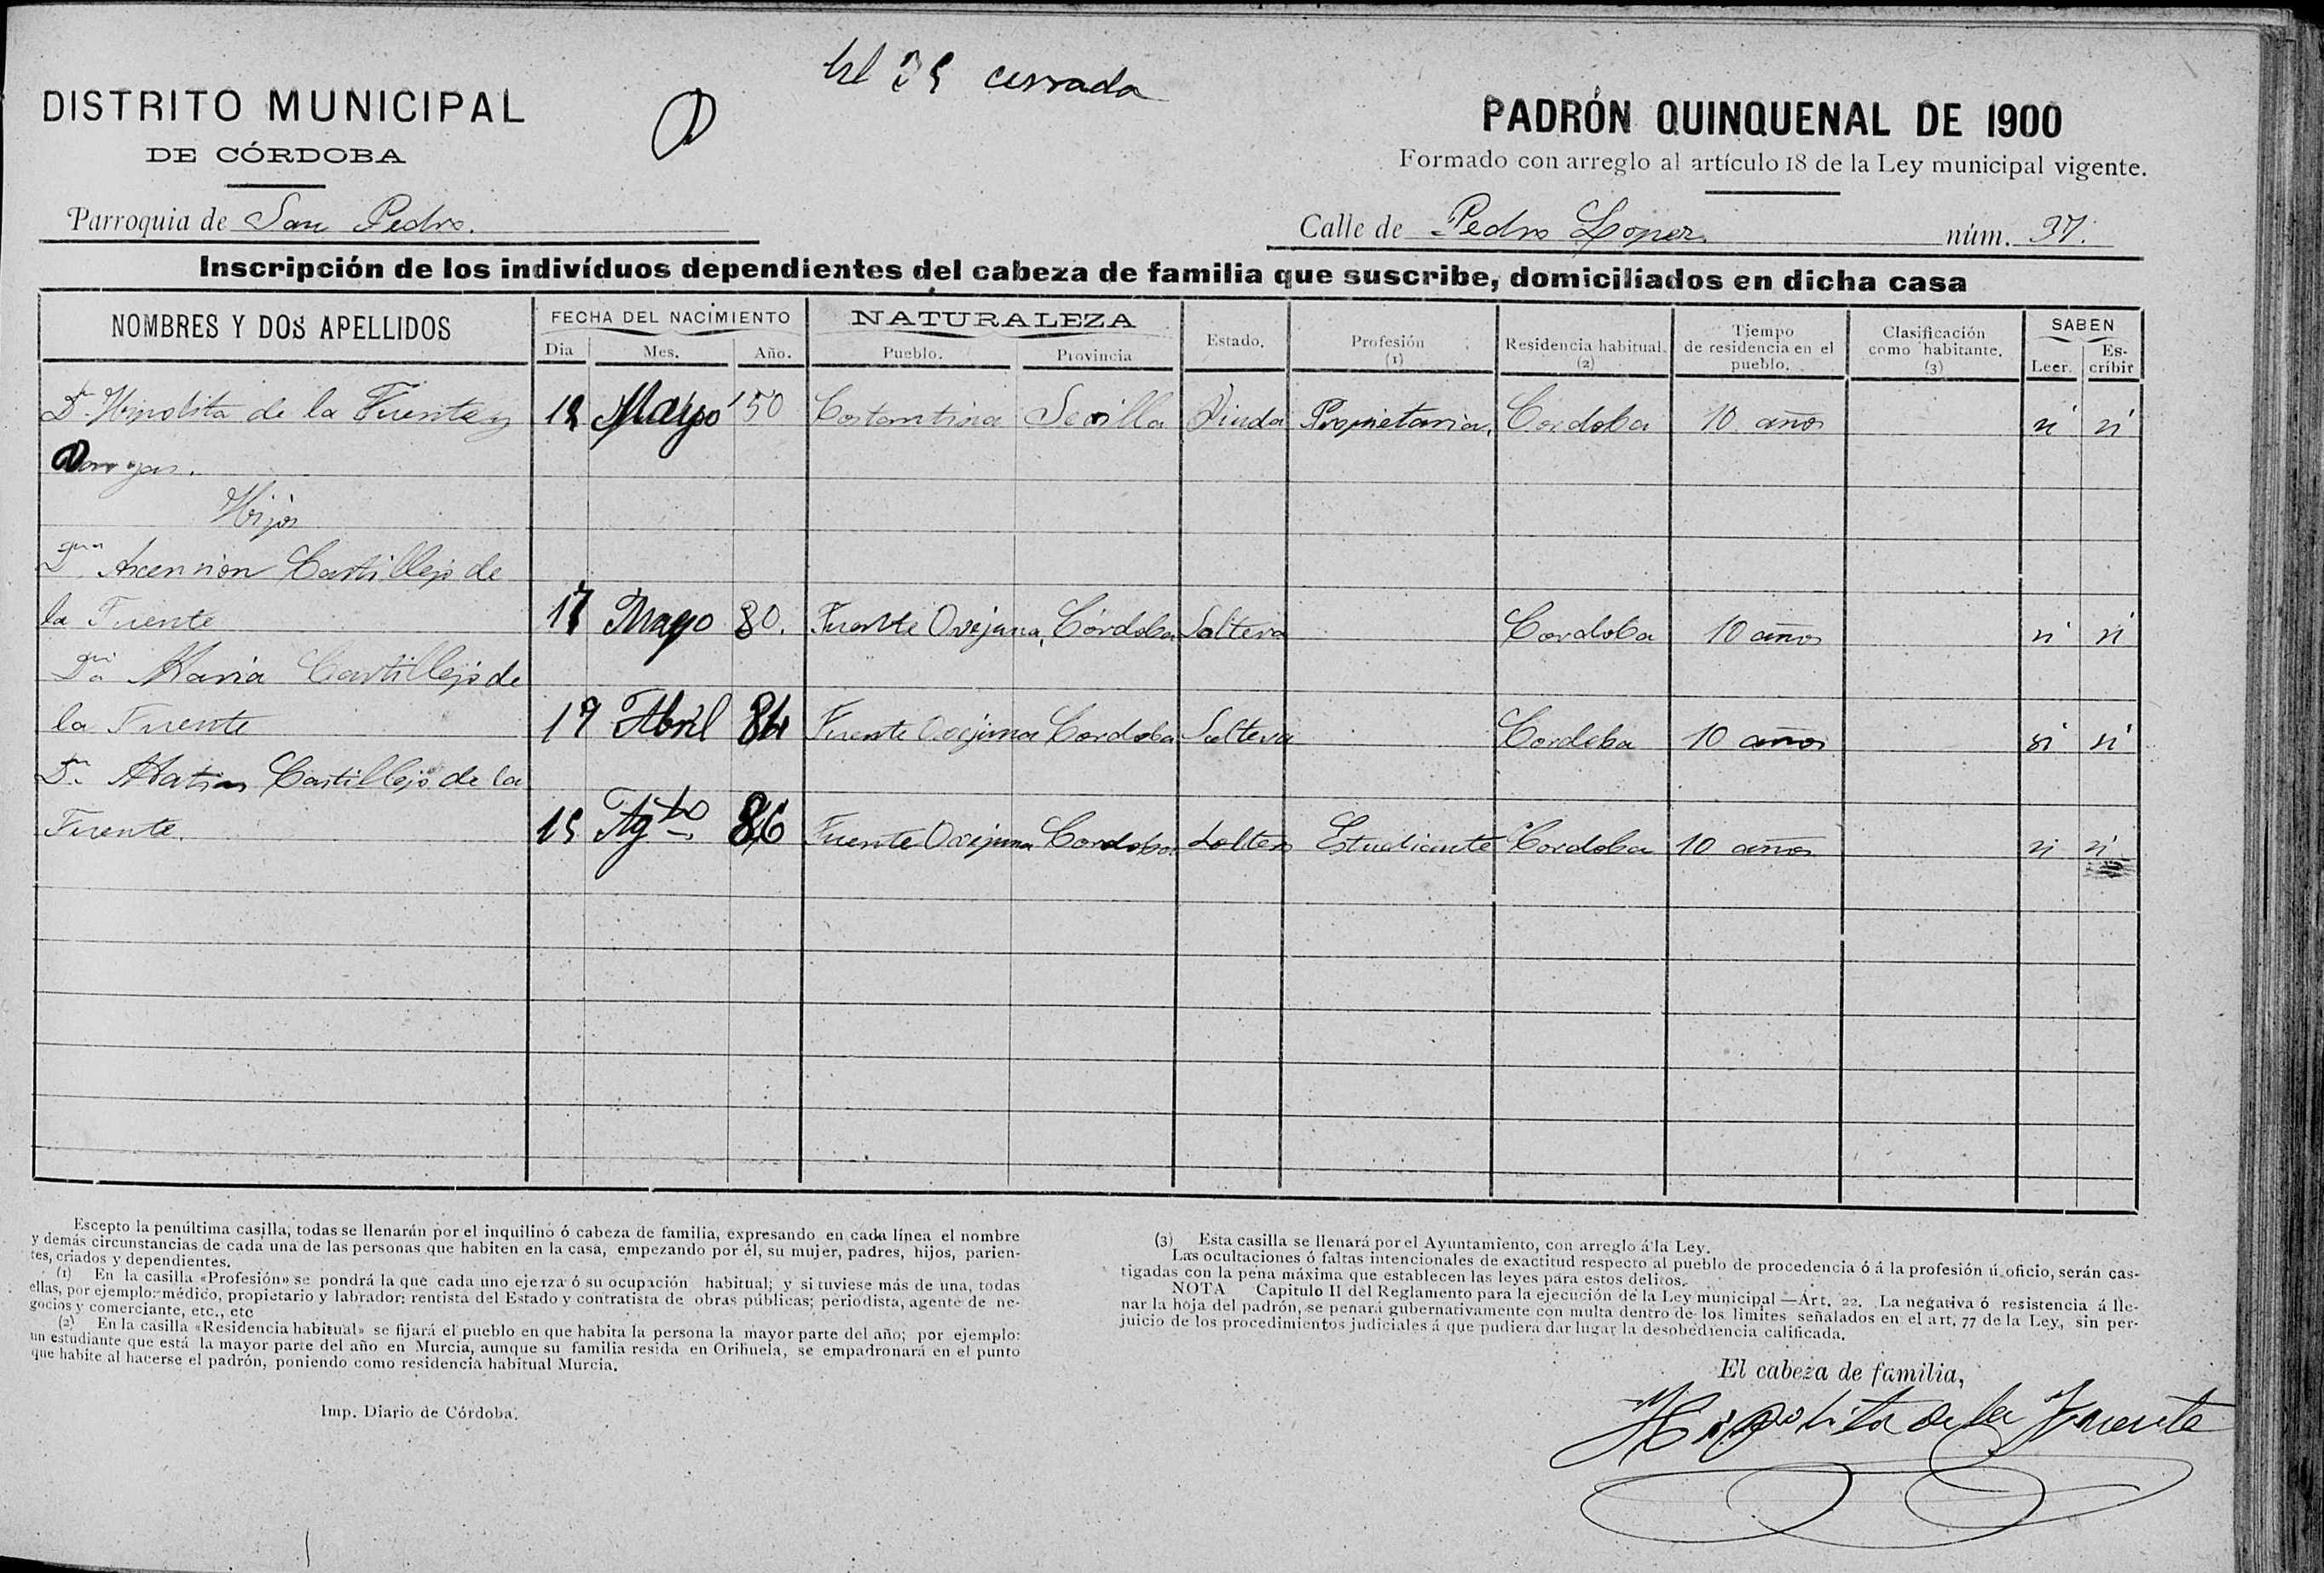 El 35 cerrada
DISTRITO MUNICIPAL
DE CÓRDOBA
PADRÓN QUINQUENAL DE 1900
Formado con arreglo al artículo 18 de la Ley municipal vigente.
Parroquia de San Pedro.
Calle de Pedro Lopez. núm. 37.
Inscripción de los indivíduos dependientes del cabeza de familia que suscribe, domiciliados en dicha casa
NOMBRES Y DOS APELLIDOS FECHA DEL NACIMIENTO NATURALEZA Estado. Profesión (1) Residencia habitual. (2) Tiempo de residencia en el pueblo. Clasificación como habitante. (3) SABEN
Dia Mes. Año. Pueblo. Provincia Leer. Escribir
Dª Hipolita de la Fuente y 18 Mayo 50 Costantina Sevilla Viuda Propietaria. Cordoba 10 años si si
Hijos
Dña Ascension Castillejo de
la Fuente 17 Mayo 80. Fuente Ovejuna, Córdoba Soltera Cordoba 10 años si si
Dña Maria Castillejo de
la Fuente 19 Abril 84 Fuente Ovejuna Cordoba Soltera Cordoba 10 años si si
Dn Matias Castillejo de la
Fuente. 15 Agto 86 Fuente Ovejuna Cordoba Soltero Estudiante Cordoba 10 años si si
Escepto la penúltima casilla, todas se llenarán por el inquilino ó cabeza de familia, expresando en cada línea el nombre
y demás circunstancias de cada una de las personas que habiten en la casa, empezando por él, su mujer, padres, hijos, parien-
tes, criados y dependientes.
(1) En la casilla «Profesión» se pondrá la que cada uno ejerza ó su ocupación habitual; y si tuviese más de una, todas
ellas, por ejemplo: médico, propietario y labrador; rentista del Estado y contratista de obras públicas; periodista, agente de ne-
gocios y comerciante, etc., etc
(2) En la casilla «Residencia habitual» se fijará el pueblo en que habita la persona la mayor parte del año; por ejemplo:
un estudiante que está la mayor parte del año en Murcia, aunque su familia resida en Orihuela, se empadronará en el punto
que habite al hacerse el padrón, poniendo como residencia habitual Murcia.
Imp. Diario de Córdoba.
(3) Esta casilla se llenará por el Ayuntamiento, con arreglo á la Ley.
Las ocultaciones ó faltas intencionales de exactitud respecto al pueblo de procedencia ó á la profesión ú oficio, serán cas-
tigadas con la pena máxima que establecen las leyes para estos delitos.
NOTA Capitulo II del Reglamento para la ejecución de la Ley municipal —Art. 22. La negativa ó resistencia á lle-
nar la hoja del padrón, se penará gubernativamente con multa dentro de los limites señalados en el art. 77 de la Ley, sin per-
juicio de los procedimientos judiciales á que pudiera dar lugar la desobediencia calificada.
El cabeza de familia,
Hipolita de la Fuente